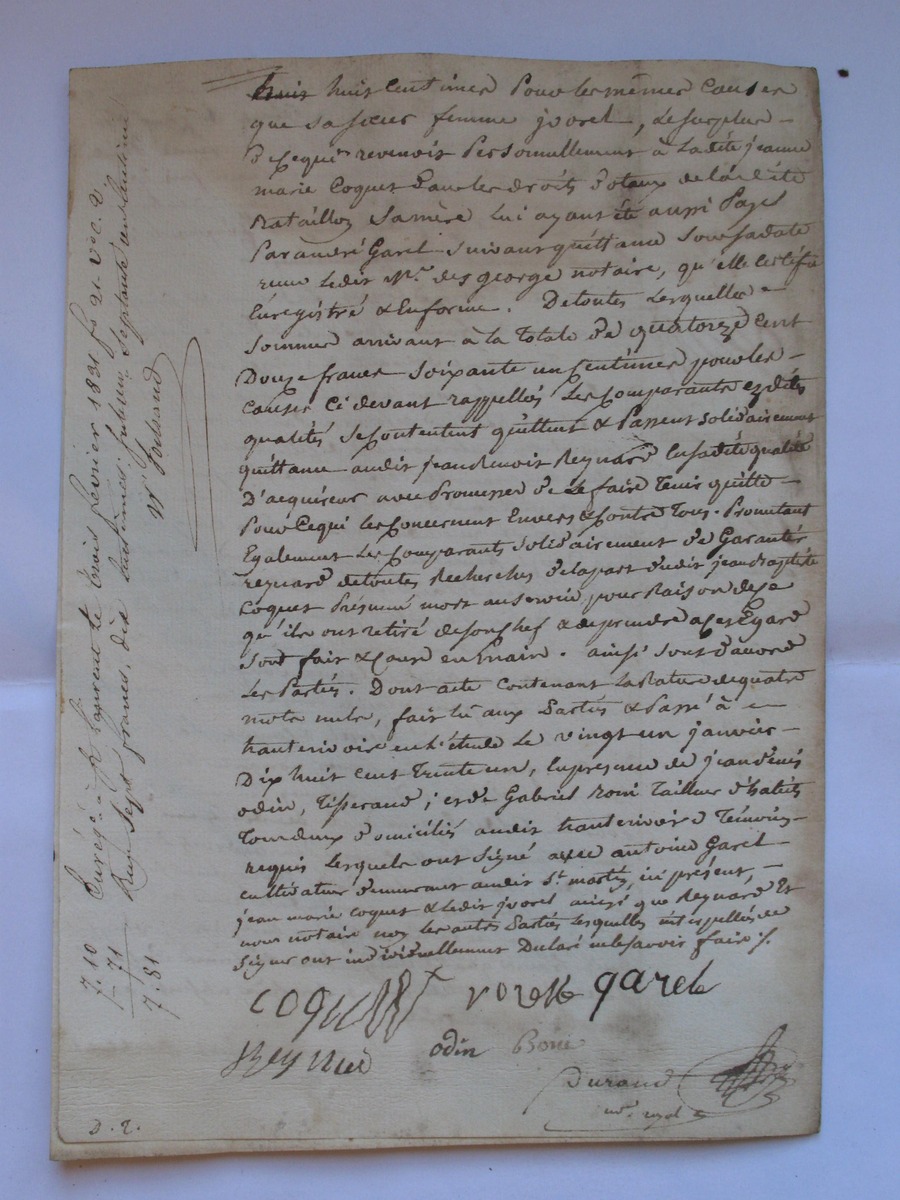 huit centimes Pour les mêmes Causes
que sa sœur femme jvorel, Le surplus
de ce qui revenoit Personnellement à Ladite jeanne
marie Coquet dans les droits dotaux de Ladite
Rataillon Sa mère Lui ayant été aussi Payé
Par andré Garel Suivant quittance Sous sa date
reçue Ledit Me. des george notaire, qu'elle certifie
Enregistré & Enforme. De toutes Lesquelles
Sommes arrivant à la Totale de quatorze Cent
Douze francs Soixante un Centimes pour les
Causes Ci devant rappellées Les Comparants ezdites
qualités Se Contentent quittent & Passent Solidairement
quittance audit jean Benoit Reynard En sadite qualité
D'acquéreur avec Promesse de Le faire Tenir quitte
Pour Ce qui les Concernent Envers & Contre Tous. Promettant
Egalement Les Comparants Solidairement de Garantir
reynard de toutes Recherches de la part dudit jean Baptiste
Coquet Présumé mort au Service, pour Raison de ce
qu'ils ont retiré de son Chef & de prendre à cet Egard
Son fait & Cause en main. ainsi sont d'accord
Les Parties. Dont acte Contenant La Rature de quatre
mots nuls, fait lû aux Parties & Passé à
hauterivoire en L'étude Le vingt un janvier
Dix huit Cent Trente un, En présence de jean denis
odin, Tisserand, & de Gabriel Boni Tailleur d'habits
Tous deux domiciliés audit hauterivoire Témoins
requis Lesquels ont Signé avec antoine Garel
Cultivateur demeurant audit St. martin, ici présent,
jean marie Coquet & Ledit jvorel ainsi que Reynard Et
nous notaire non les autres Parties Lesquelles interpellées de
Signer ont individuellement Déclaré ne le savoir faire ./.
Coquet vorelle garel
Reynard odin Boni
Durand
Enregé. à St Laurent le trois février 1831 fo 21. Vo C. 2.
Reçu Sept francs, dix huit centimes
7. 10
71
7. 81
D. 2.